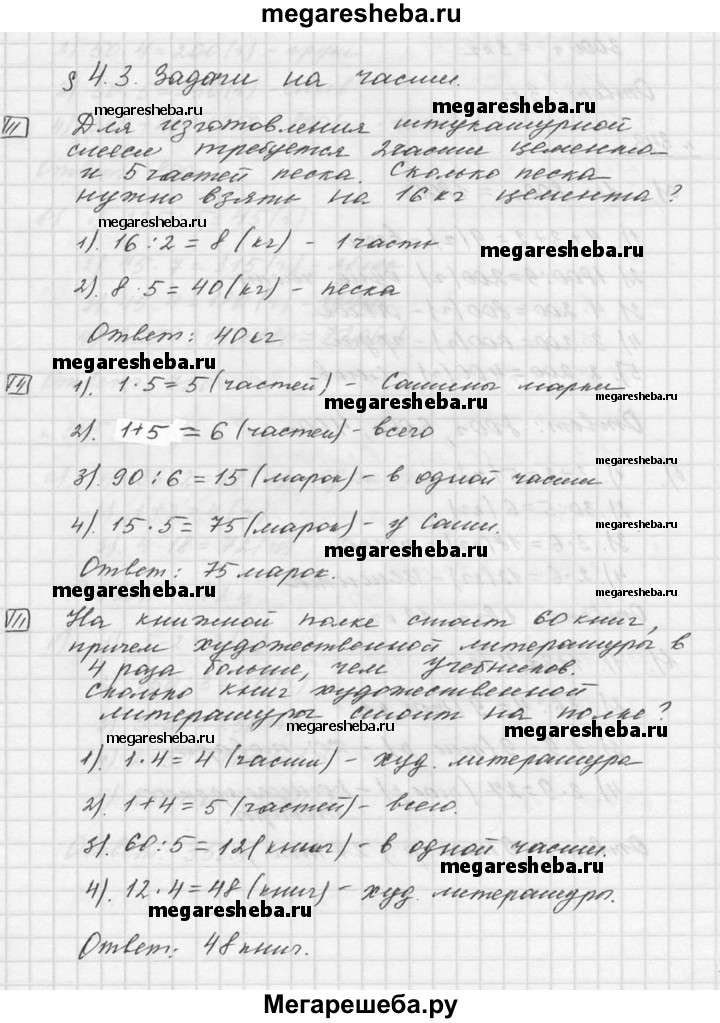 megaresheba.ru
§ 4.3. Задачи на части.
megaresheba.ru megaresheba.ru
Для изготовления штукатурной
смеси требуется 2 части цемента
и 5 частей песка. Сколько песка
нужно взять на 16 кг цемента?
megaresheba.ru
1). 16 : 2 = 8 (кг) - 1 часть
megaresheba.ru
2). 8 · 5 = 40 (кг) - песка
Ответ: 40 кг
megaresheba.ru
1). 1 · 5 = 5 (частей) - Сашины марки
megaresheba.ru
2). 1+5 = 6 (частей) - всего
megaresheba.ru
3). 90 : 6 = 15 (марок) - в одной части
megaresheba.ru
4). 15 · 5 = 75 (марок) - у Саши.
megaresheba.ru
Ответ: 75 марок.
megaresheba.ru megaresheba.ru
На книжной полке стоит 60 книг,
причем художественной литературы в
4 раза больше, чем учебников.
Сколько книг художественной
литературы стоит на полке?
megaresheba.ru megaresheba.ru
1). 1 · 4 = 4 (части) - худ. литература
2). 1 + 4 = 5 (частей) - всего.
3). 60 : 5 = 12 (книг) - в одной части.
megaresheba.ru
4). 12 · 4 = 48 (книг) - худ. литературы.
megaresheba.ru
Ответ: 48 книг.
Мегарешеба.ру